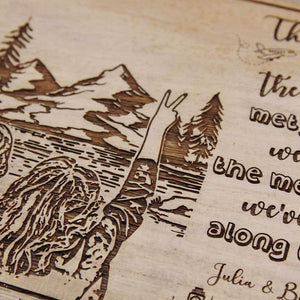 Th
The
met
we
the me
we'v
along
Julia & B